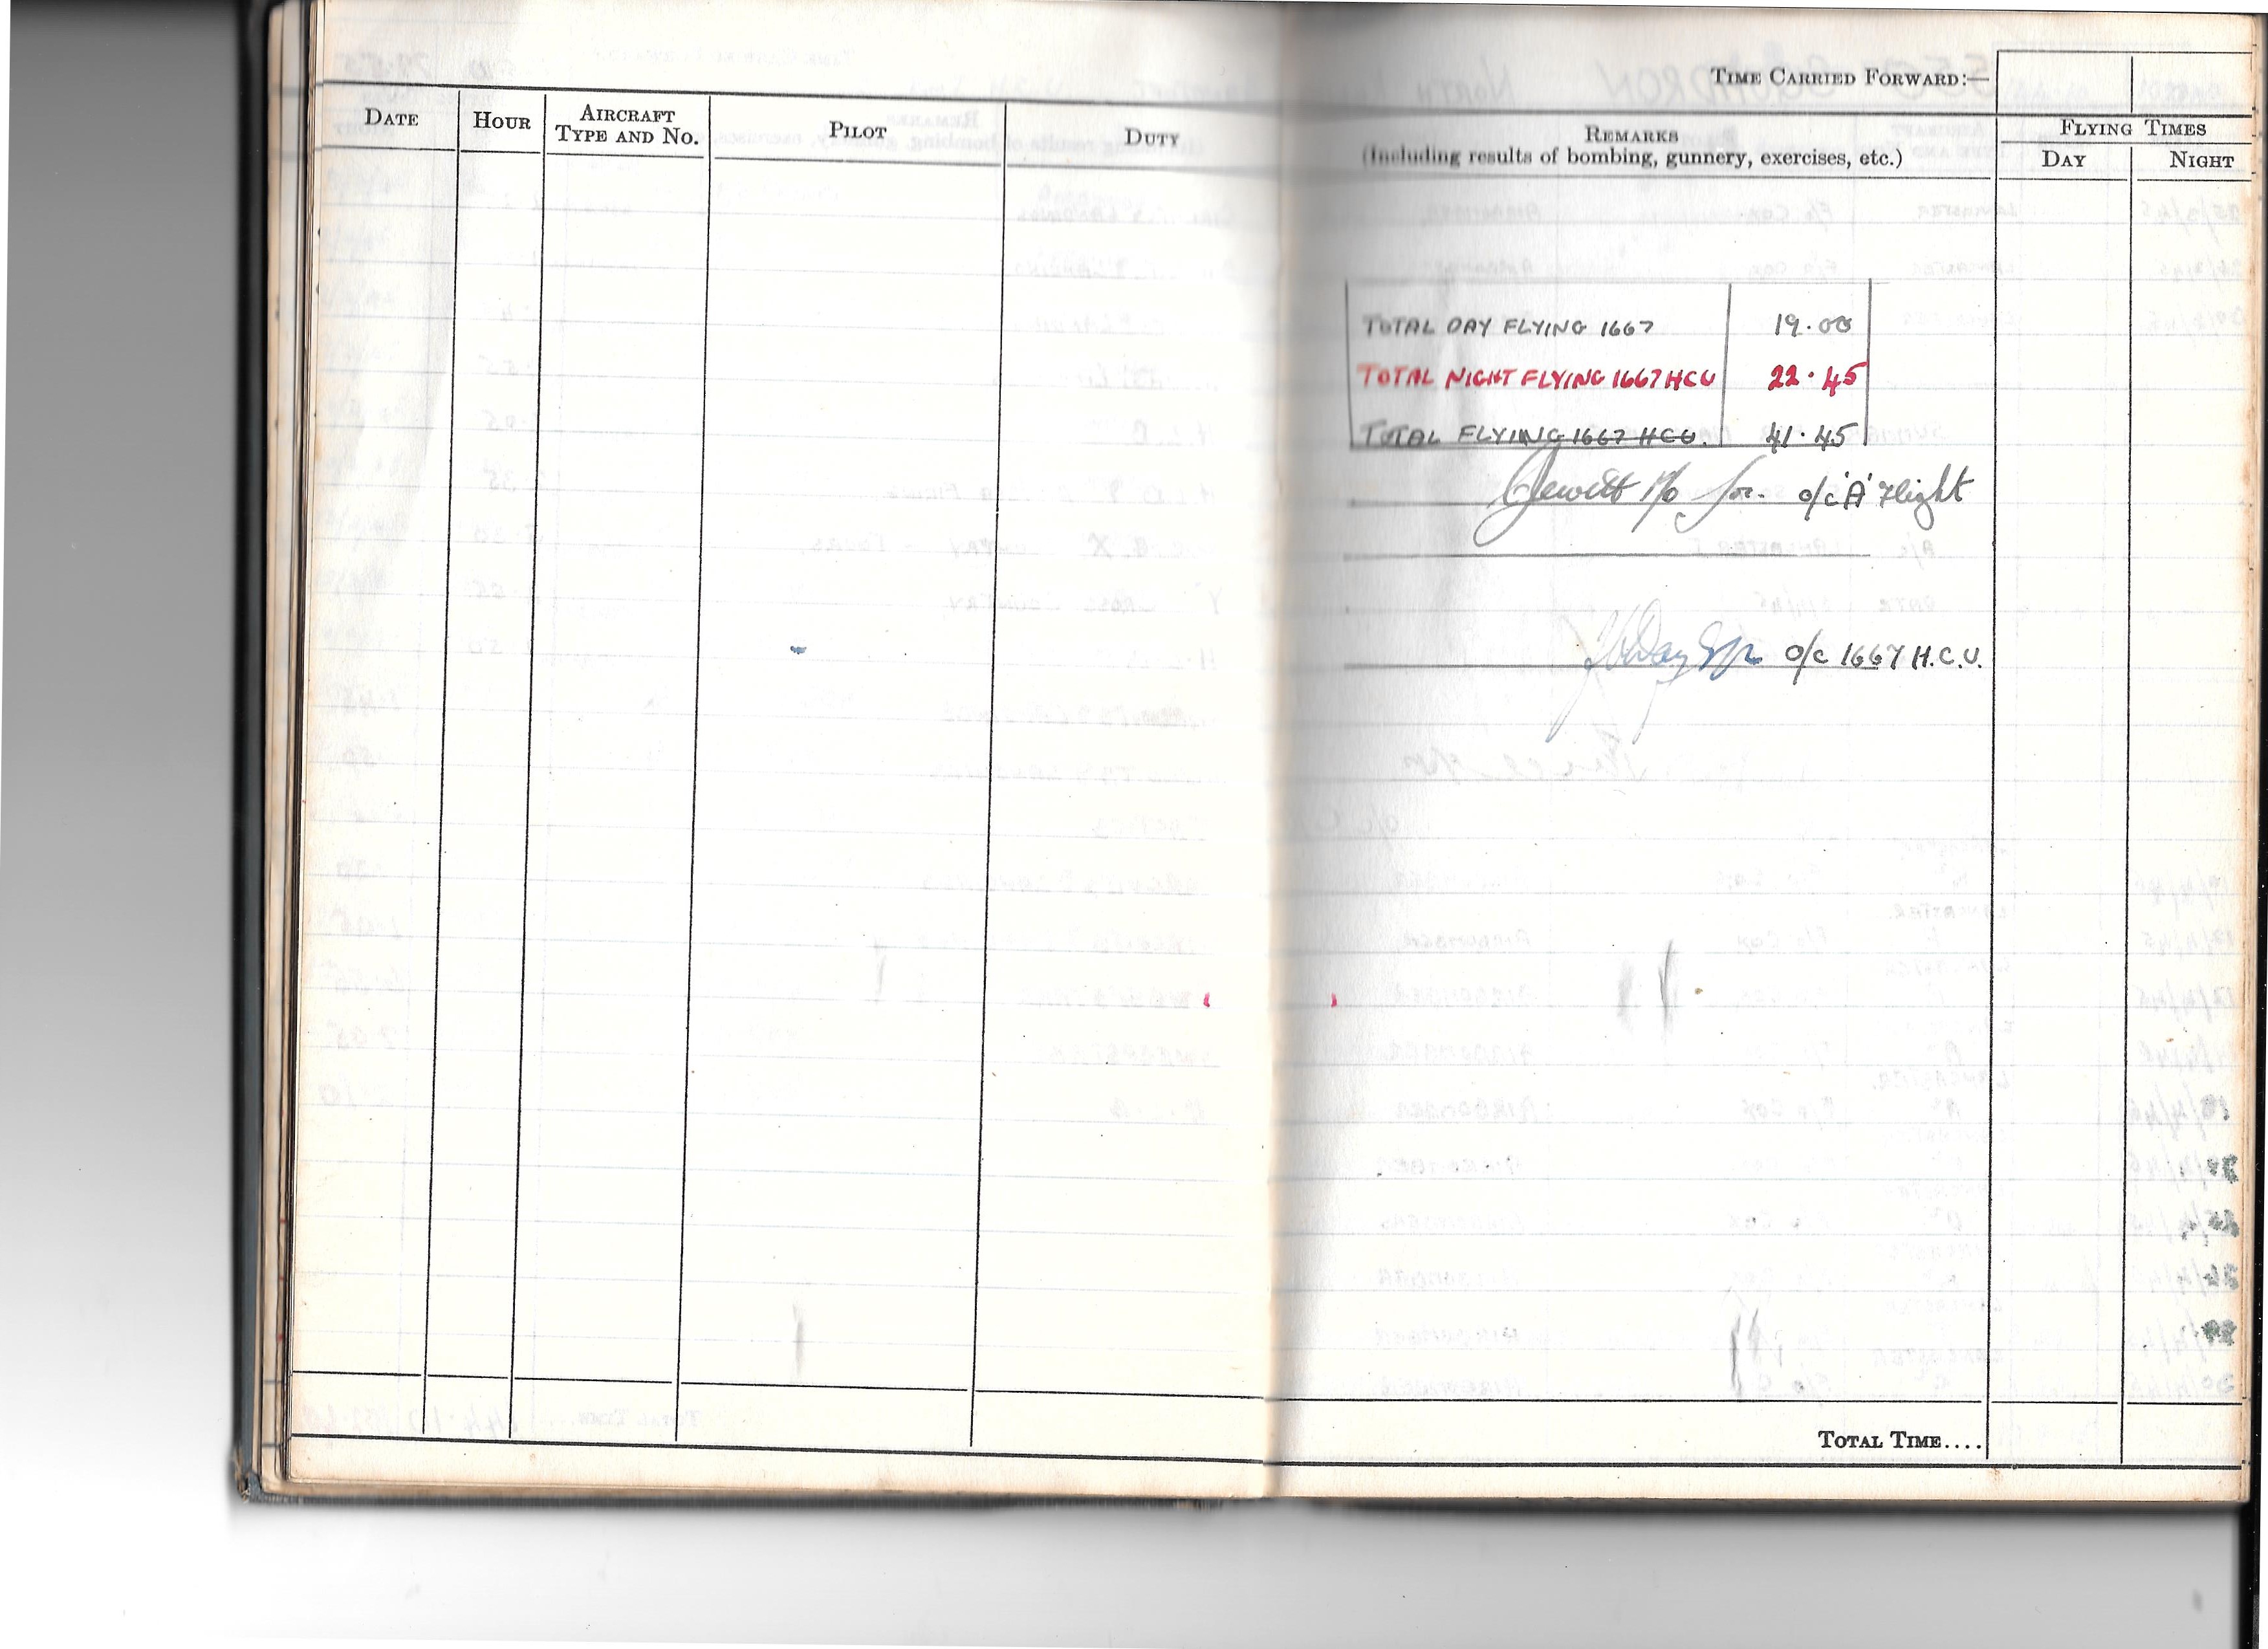 TIME CARRIED FORWARD:—
DATE
HOUR
AIRCRAFT
TYPE AND NO.
PILOT
DUTY
REMARKS
(Including results of bombing, gunnery, exercises, etc.)
FLYING TIMES
DAY
NIGHT
TOTAL DAY FLYING 1667 19.00
TOTAL NIGHT FLYING 1667 HCU 22.45
TOTAL FLYING 1667 HCU. 41.45
Jewitt for. o/c 'A' Flight
Day o/c 1667 H.C.U.
TOTAL TIME....